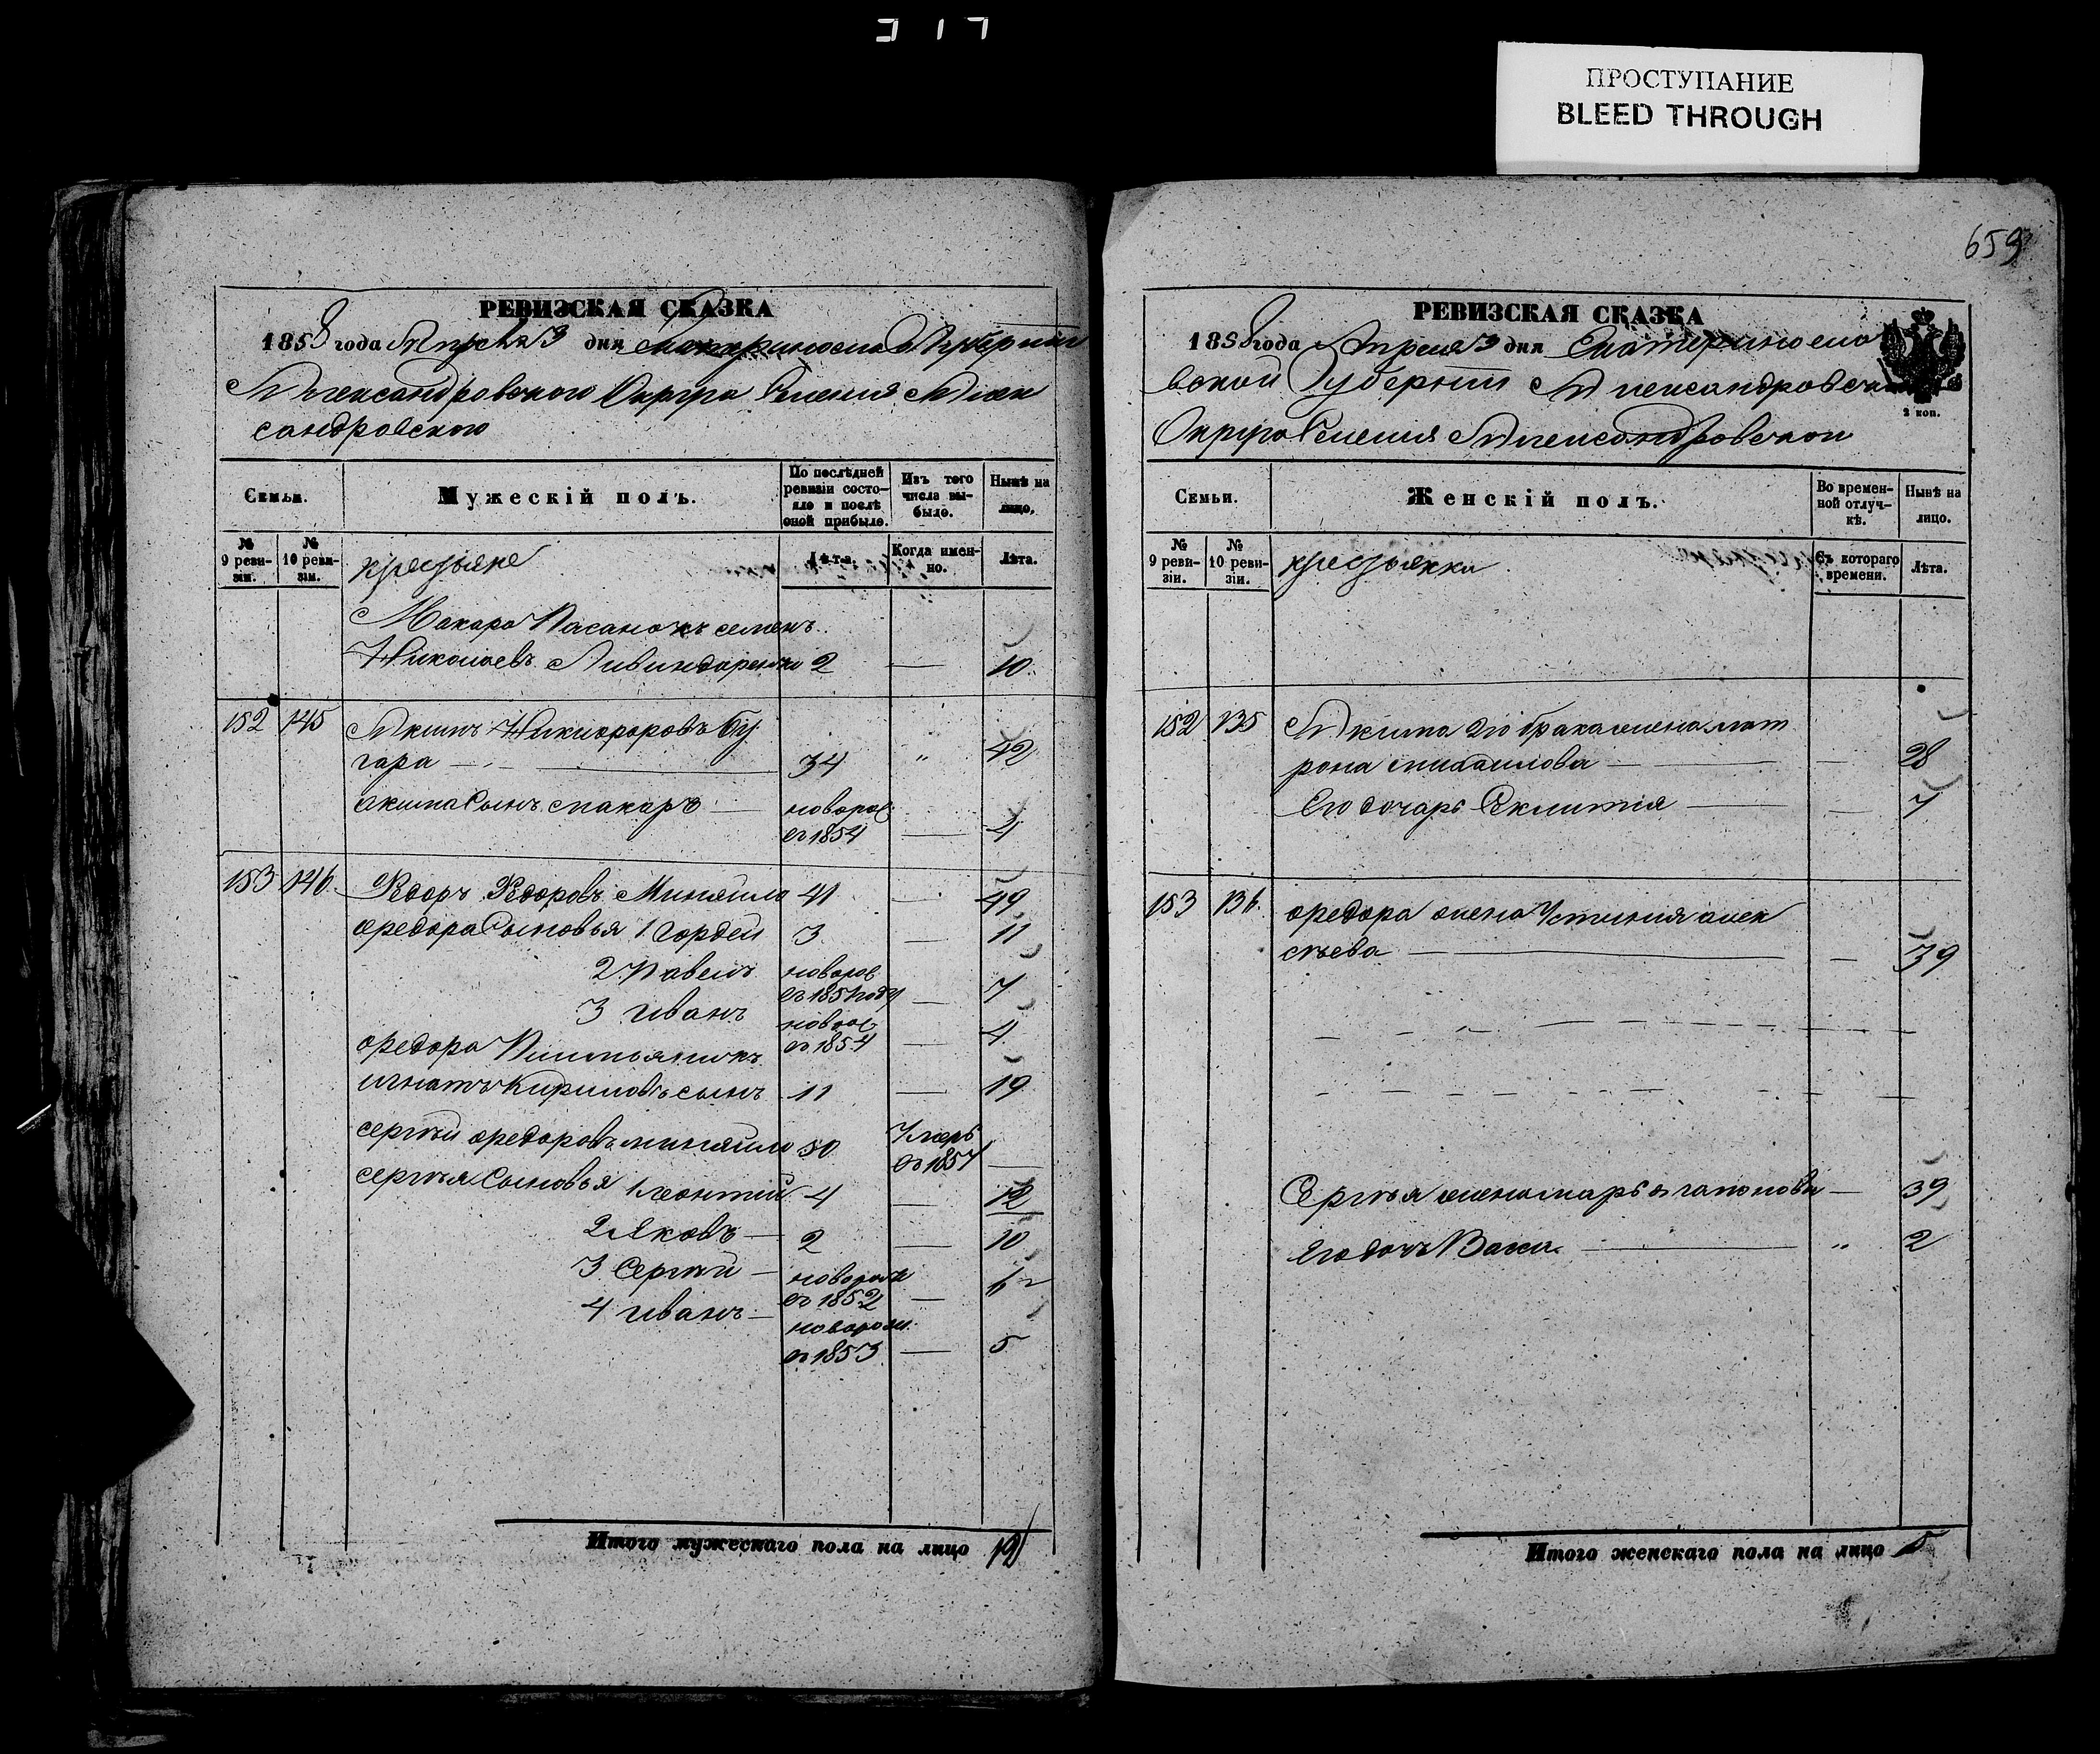 317
ПРОСТУПАНИЕ
BLEED THROUGH
659
РЕВИЗСКАЯ СКАЗКА
1858 года Апреля 3 дня Екатериносла Губернии
Александровского Округа Селения Алек
сандровского
Семьи.
Мужескій полъ.
По послѣдней
ревизіи состо-
яло и послѣ
оной прибыло.
Изъ того
числа вы-
было.
Нынѣ на
лицо.
№
9 реви-
зіи.
№
10 реви-
зіи.
крестьяне
Лѣта.
Когда имен-
но.
Лѣта.
Макара Пасанокъ семенъ
Николаевъ 2 — 10
152 145 Акимъ Никифоровъ Бу
гара — 34 " 42
акима Сынъ макаръ — новорож
въ 1854 — 4
153 146 Федоръ Федоровъ Миняйло 41 — 49
федора Сыновья 1 Гордей 3 — 11
2 Павелъ новорож
въ 1851 году — 7
3 иванъ новорож
въ 1854 — 4
федора
игнатъ Кириловъ сынъ 11 — 19
сергѣй федоровъ миняйло 50 Умеръ
въ 1857 —
сергѣя Сыновья 1 леонтій 4 — 12
2 Яковъ — 2 — 10
3 Сергѣй — новорож
въ 1852 — 6
4 иванъ — новорож.
въ 1853 — 5
Итого мужескаго пола на лицо 12
РЕВИЗСКАЯ СКАЗКА
1858 года Апреля 3 дня Екатериносла
вской Губернии Александровска
Округа Селения Александровского
2 коп.
Семьи.
Женскій полъ.
Во времен-
ной отлуч-
кѣ.
Нынѣ на
лицо.
№
9 реви-
зіи.
№
10 реви-
зіи.
крестьянки
Съ котораго
времени.
Лѣта.
152 135 Акима 2го брака жена мат
рона михаилова — — 28
Его дочерь — — 7
153 136 федора жена Устиния алек
сѣева — — 39
Сергѣя жена марья — 39
Его дочь Васи. — " 2
Итого женскаго пола на лицо 5